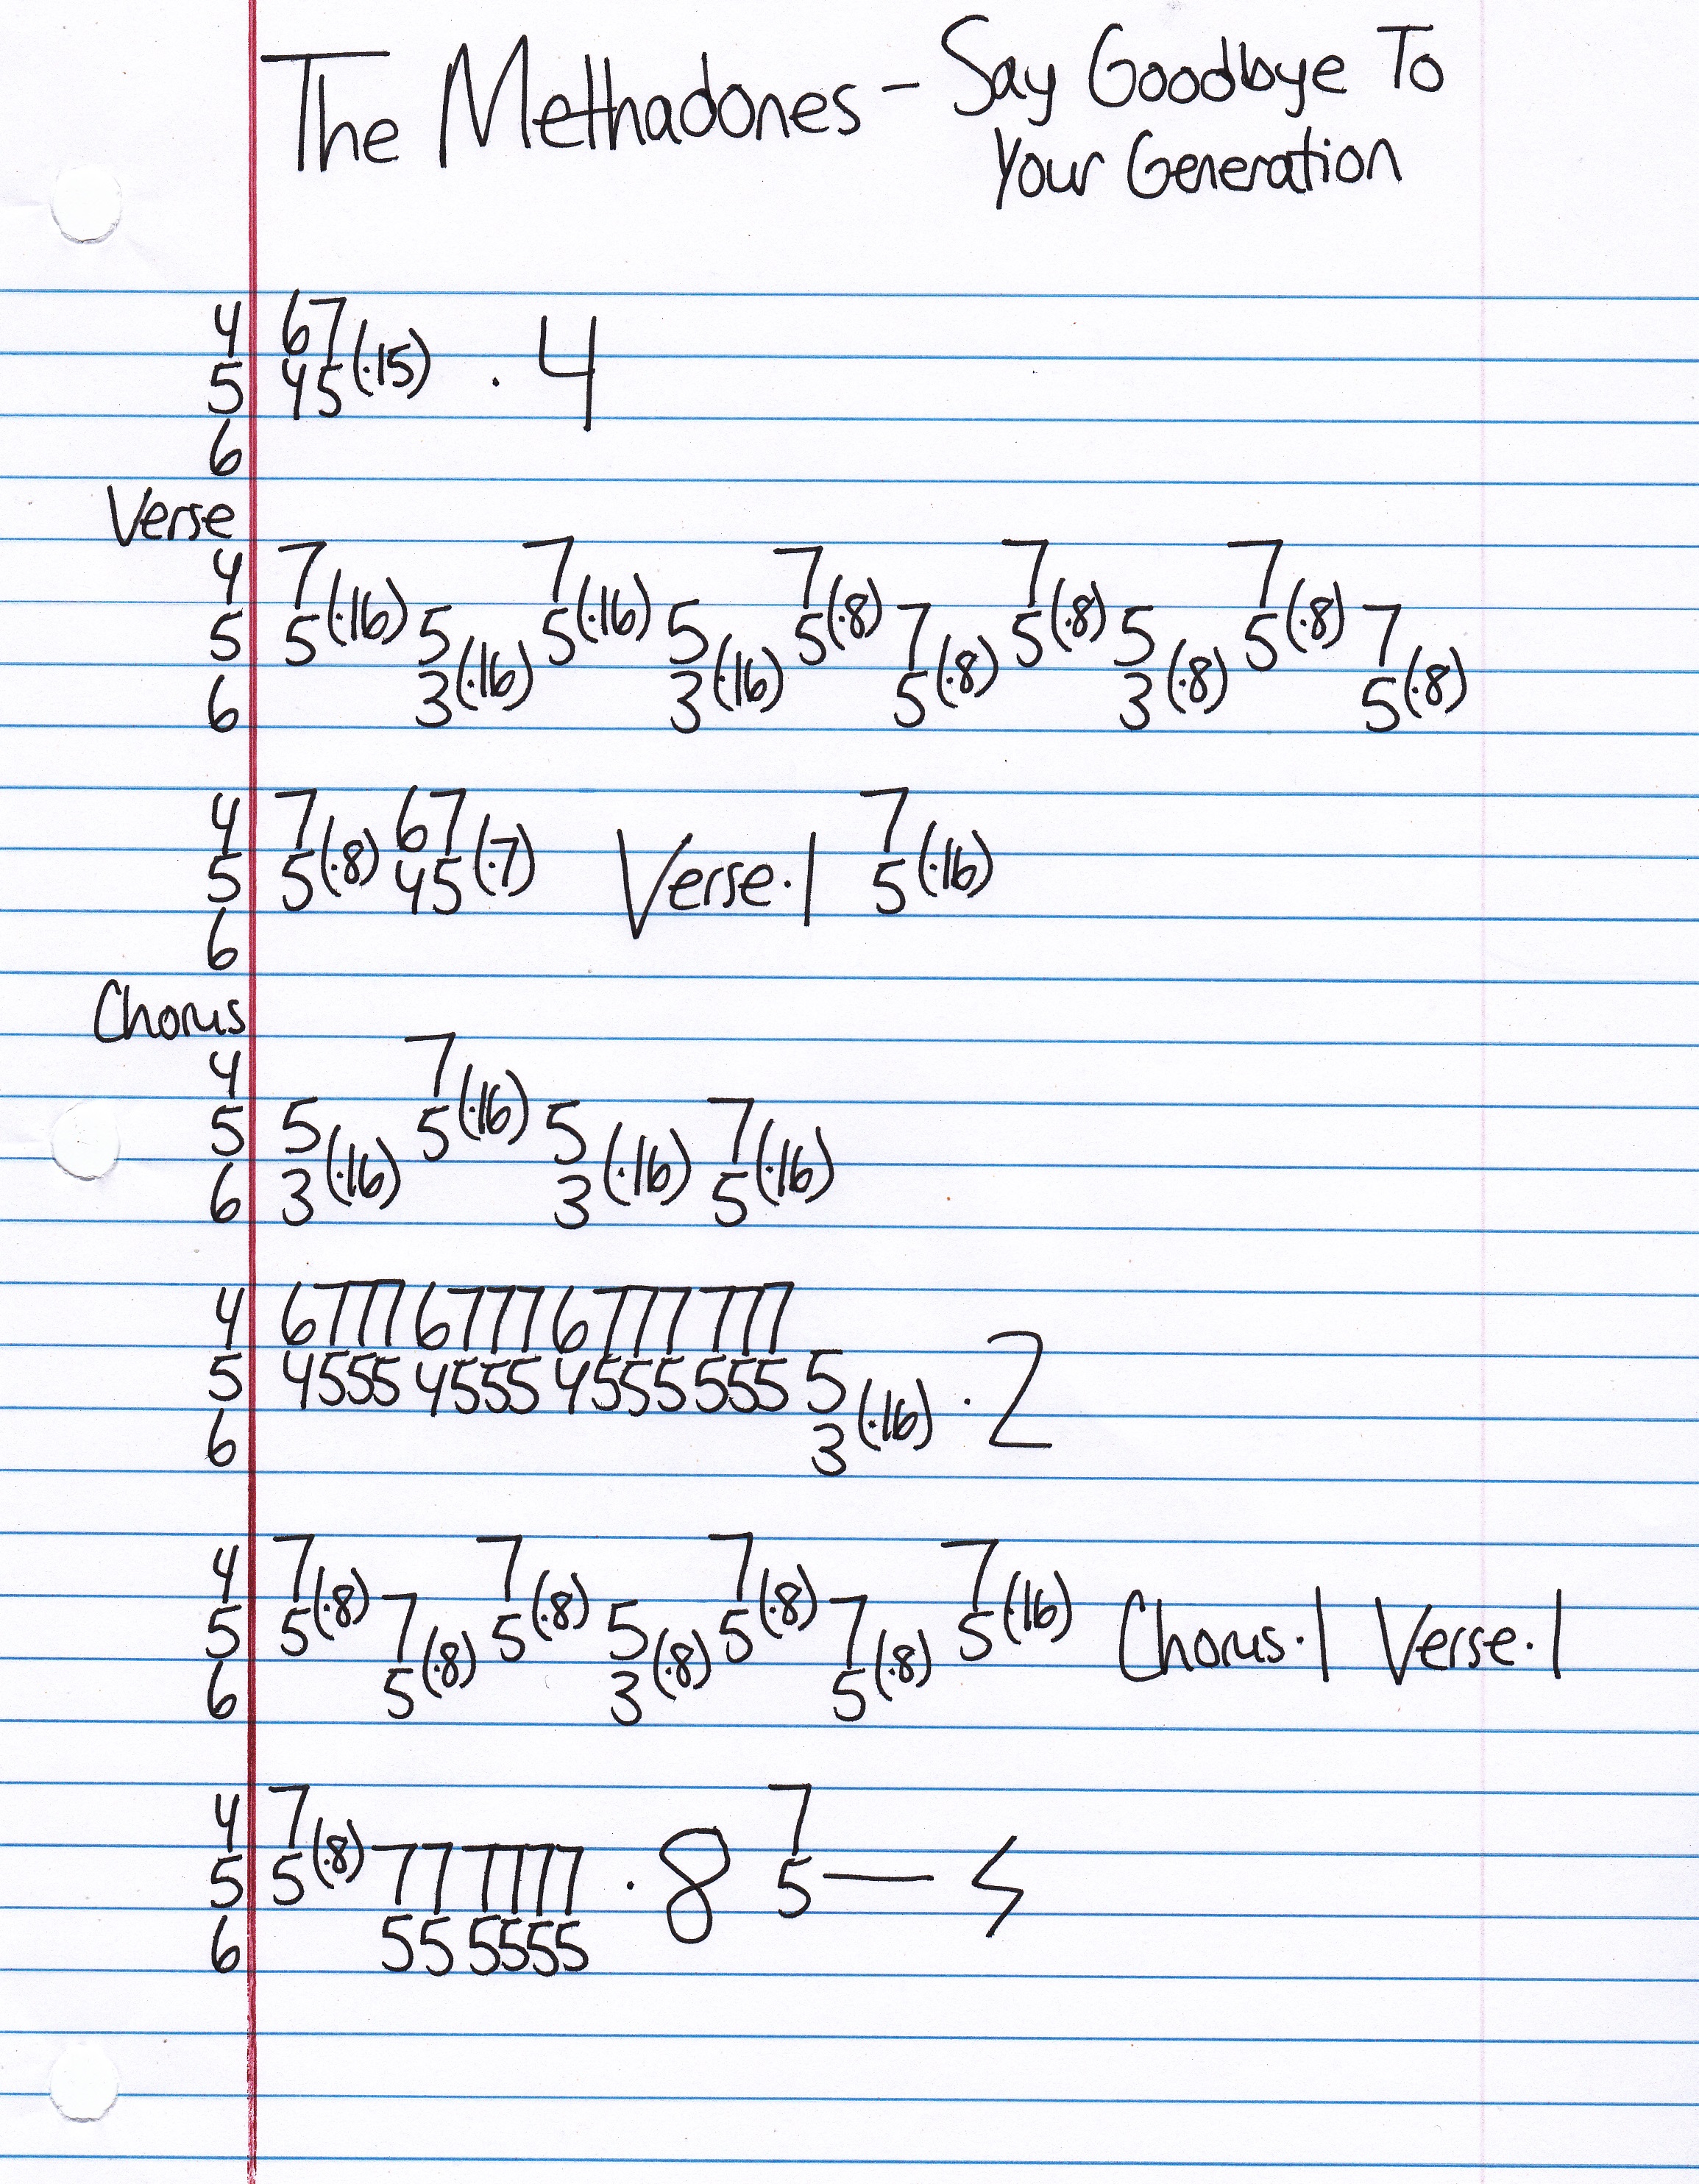 The Methadones - Say Goodbye To
Your Generation
4 67
5 45(·15) · 4
6
Verse
4 7 7 7 7 7
5 5(·16) 5 5(·16) 5 5(·8) 7 5(·8) 5 5(·8) 7
6 3(·16) 3(·16) 5(·8) 3(·8) 5(·8)
4 7 67 7
5 5(·8) 45(·7) Verse·1 5(·16)
6
Chorus
4 7
5 5 5(·16) 5 7
6 3(·16) 3(·16) 5(·16)
4 6777 6777 6777 777
5 4555 4555 4555 555 5
6 3(·16) · 2
4 7 7 7 7
5 5(·8) 7 5(·8) 5 5(·8) 7 5(·16) Chorus·1 Verse·1
6 5(·8) 3(·8) 5(·8)
4 7 7
5 5(·8) 77 7777 · 8 5—
6 55 5555